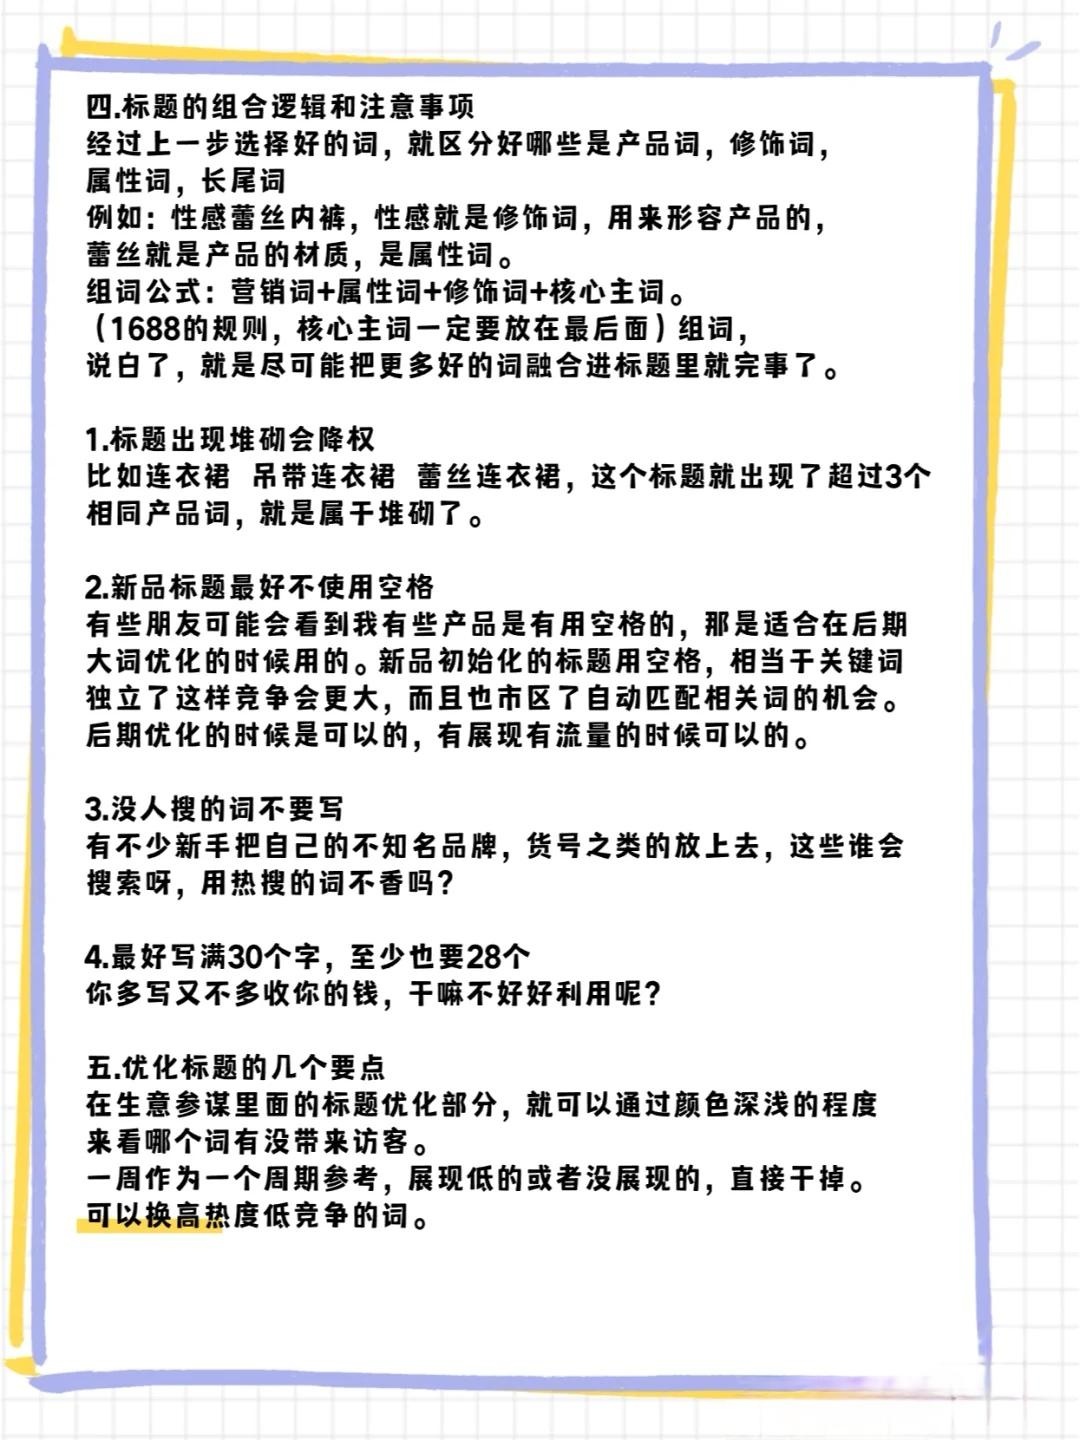 四.标题的组合逻辑和注意事项
经过上一步选择好的词，就区分好哪些是产品词，修饰词，
属性词，长尾词
例如：性感蕾丝内裤，性感就是修饰词，用来形容产品的，
蕾丝就是产品的材质，是属性词。
组词公式：营销词+属性词+修饰词+核心主词。
（1688的规则，核心主词一定要放在最后面）组词，
说白了，就是尽可能把更多好的词融合进标题里就完事了。
1.标题出现堆砌会降权
比如连衣裙 吊带连衣裙 蕾丝连衣裙，这个标题就出现了超过3个
相同产品词，就是属于堆砌了。
2.新品标题最好不使用空格
有些朋友可能会看到我有些产品是有用空格的，那是适合在后期
大词优化的时候用的。新品初始化的标题用空格，相当于关键词
独立了这样竞争会更大，而且也市区了自动匹配相关词的机会。
后期优化的时候是可以的，有展现有流量的时候可以的。
3.没人搜的词不要写
有不少新手把自己的不知名品牌，货号之类的放上去，这些谁会
搜索呀，用热搜的词不香吗？
4.最好写满30个字，至少也要28个
你多写又不多收你的钱，干嘛不好好利用呢？
五.优化标题的几个要点
在生意参谋里面的标题优化部分，就可以通过颜色深浅的程度
来看哪个词有没带来访客。
一周作为一个周期参考，展现低的或者没展现的，直接干掉。
可以换高热度低竞争的词。